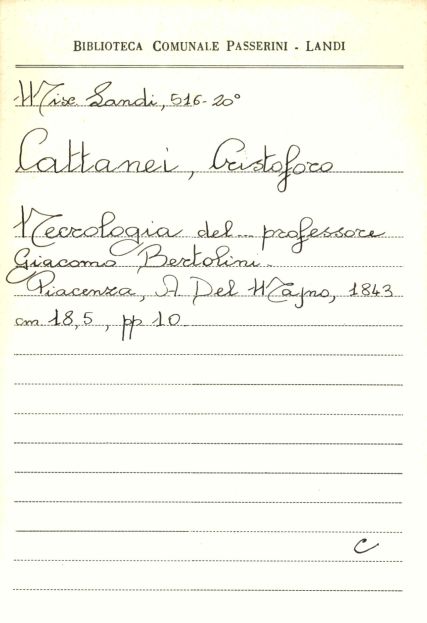 BIBLIOTECA COMUNALE PASSERINI - LANDI
Misc Landi, 516-20°
Cattanei, Cristoforo
Necrologia del professore
Giacomo Bertolini.
Piacenza, A Del Majno, 1843
cm 18,5, pp 10
C